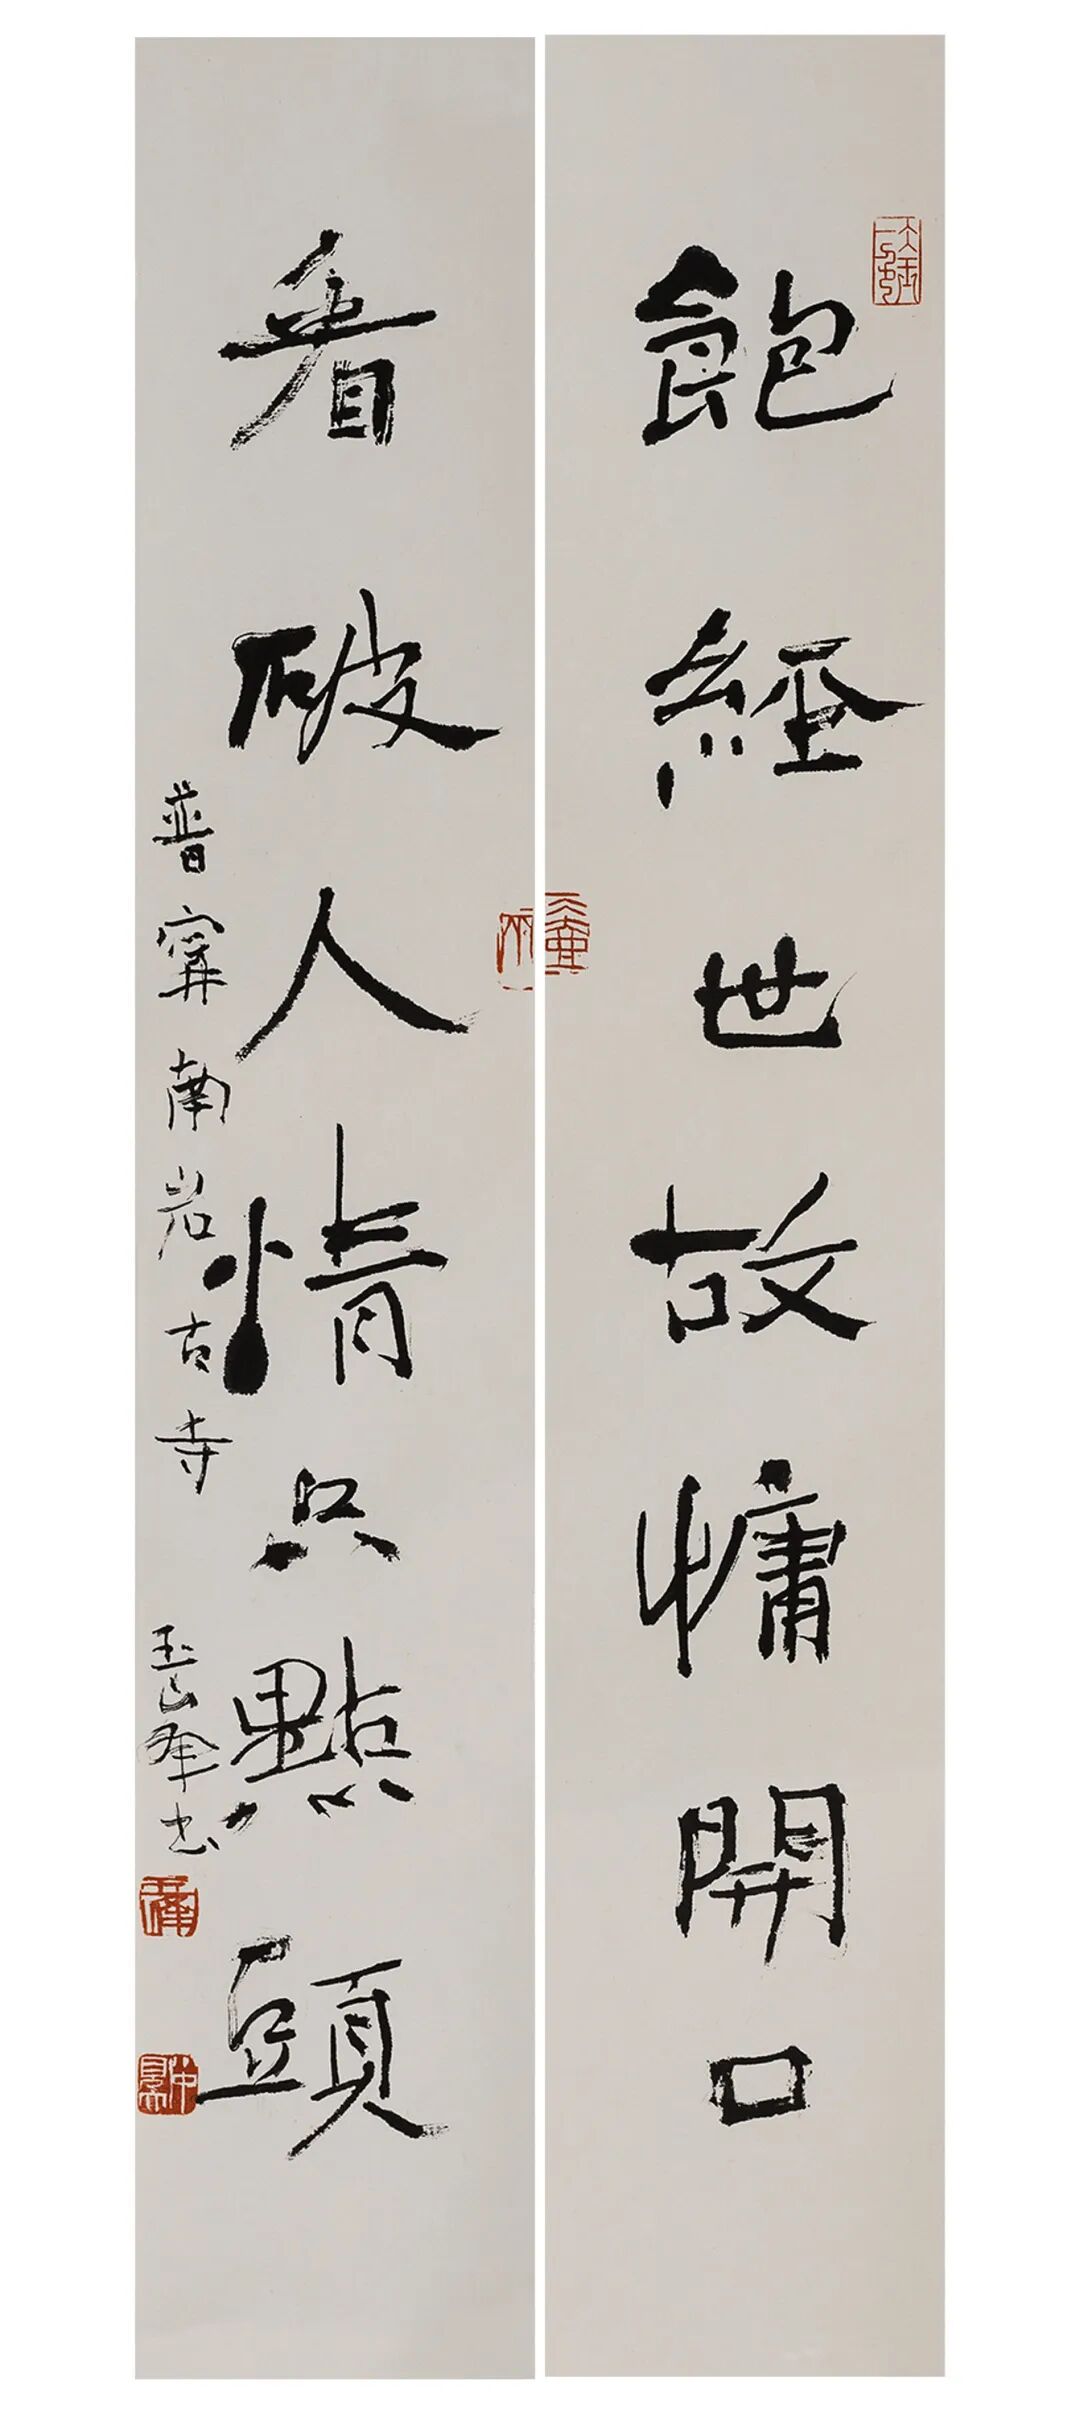 飽經世故慵開口
看破人情只點頭
普寧南岩古寺
玉峰書